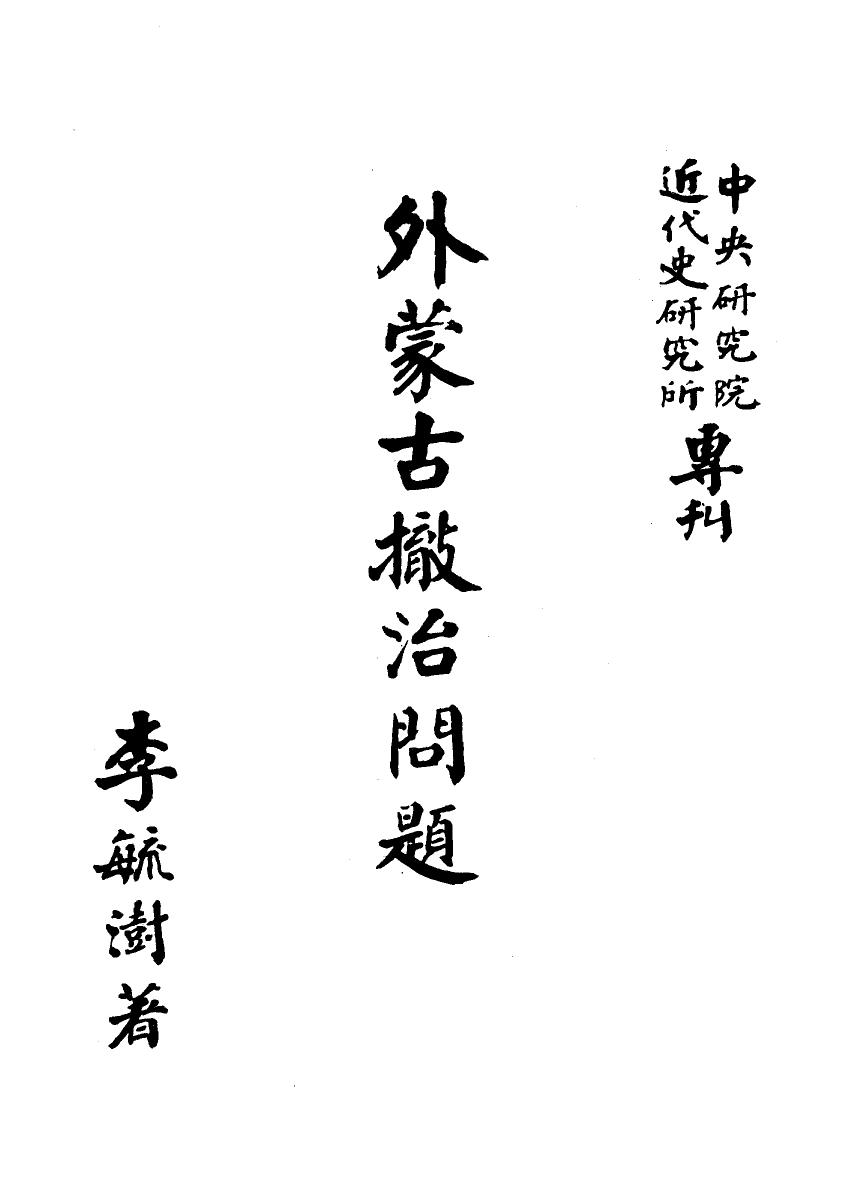 中央研究院
近代史研究所
專刋
外蒙古撤治問題
李毓澍著